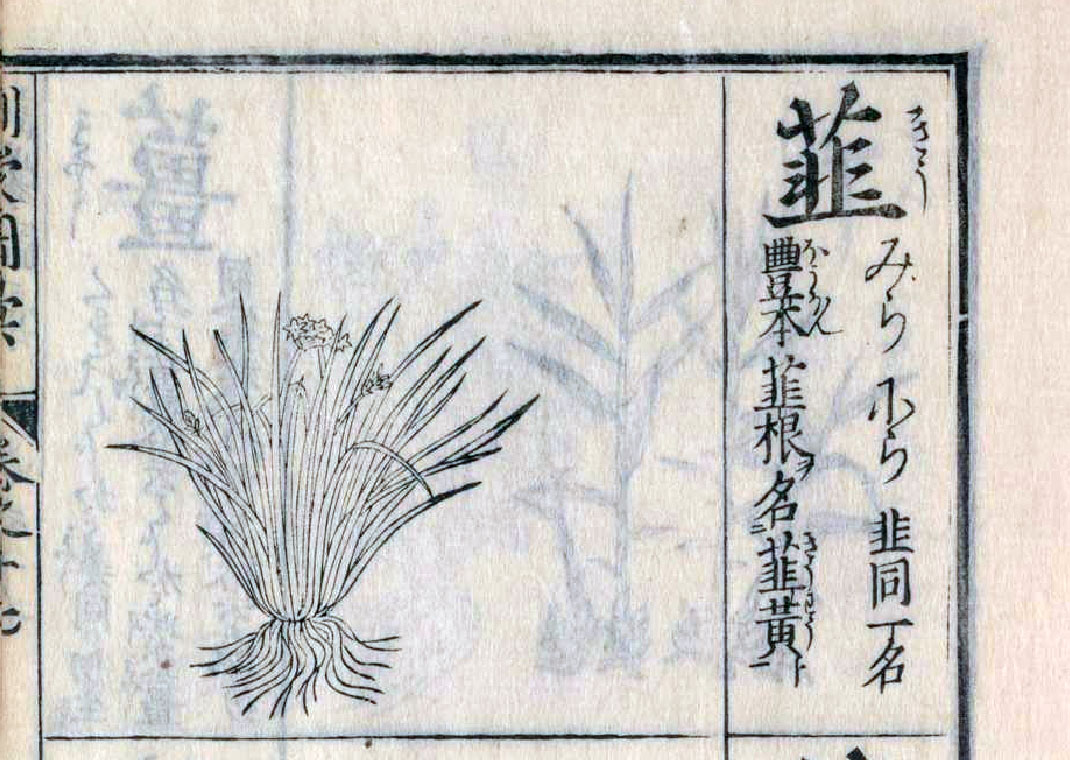 韮 きう
みら にら 韭同 一名
豊本 ほうほん 韮根ヲ名ニ韮黄ト きうわう
卷之十七